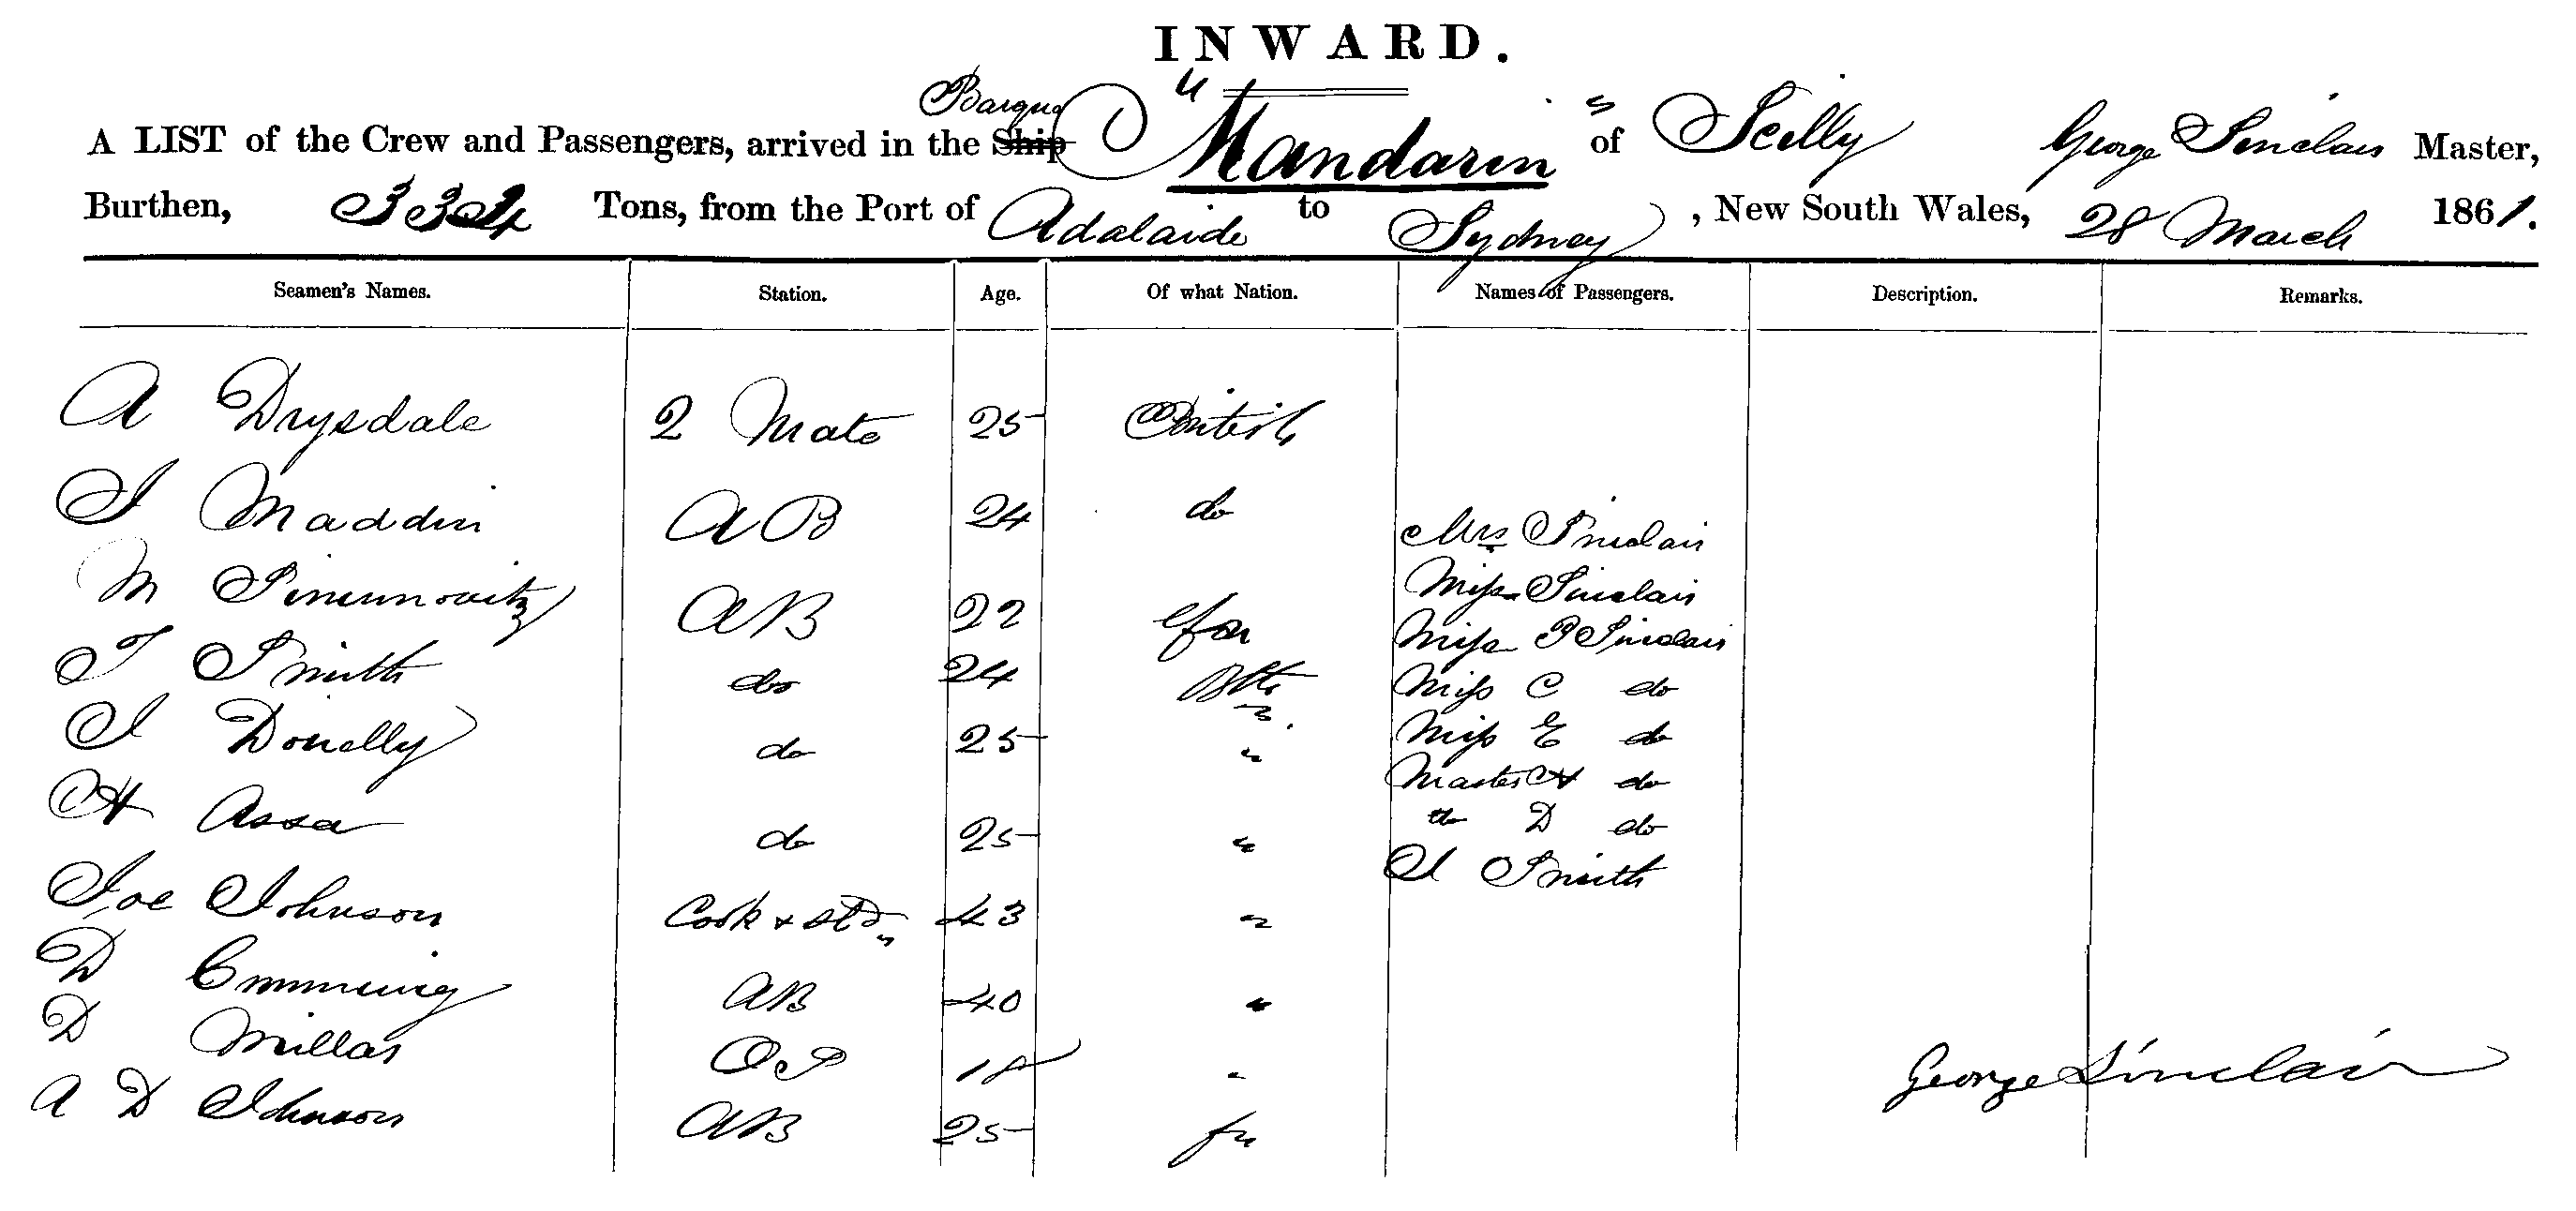 INWARD.
Barque
A LIST of the Crew and Passengers, arrived in the Ship "Mandarin" of Scilly George Sinclair Master,
Burthen, Tons, from the Port of Adalaide to Sydney, New South Wales, 28 March 1861.
Seamen's Names. Station. Age. Of what Nation. Names of Passengers. Description. Remarks.
A Drysdale 2 Mate 25 British
J Maddin AB 24 do Mrs Sinclair
M AB 22 for Miss Sinclair
T Smith do 24 Miss Sinclair
J Donelly do 25 " Miss C do
H Assa do 25 " Miss E do
Master H do
do D do
J Smith
Joe Johnson Cook & Std 43 "
D Cumming AB 40 "
D Millar OS 18 "
George Sinclair
A D Johnson AB 25